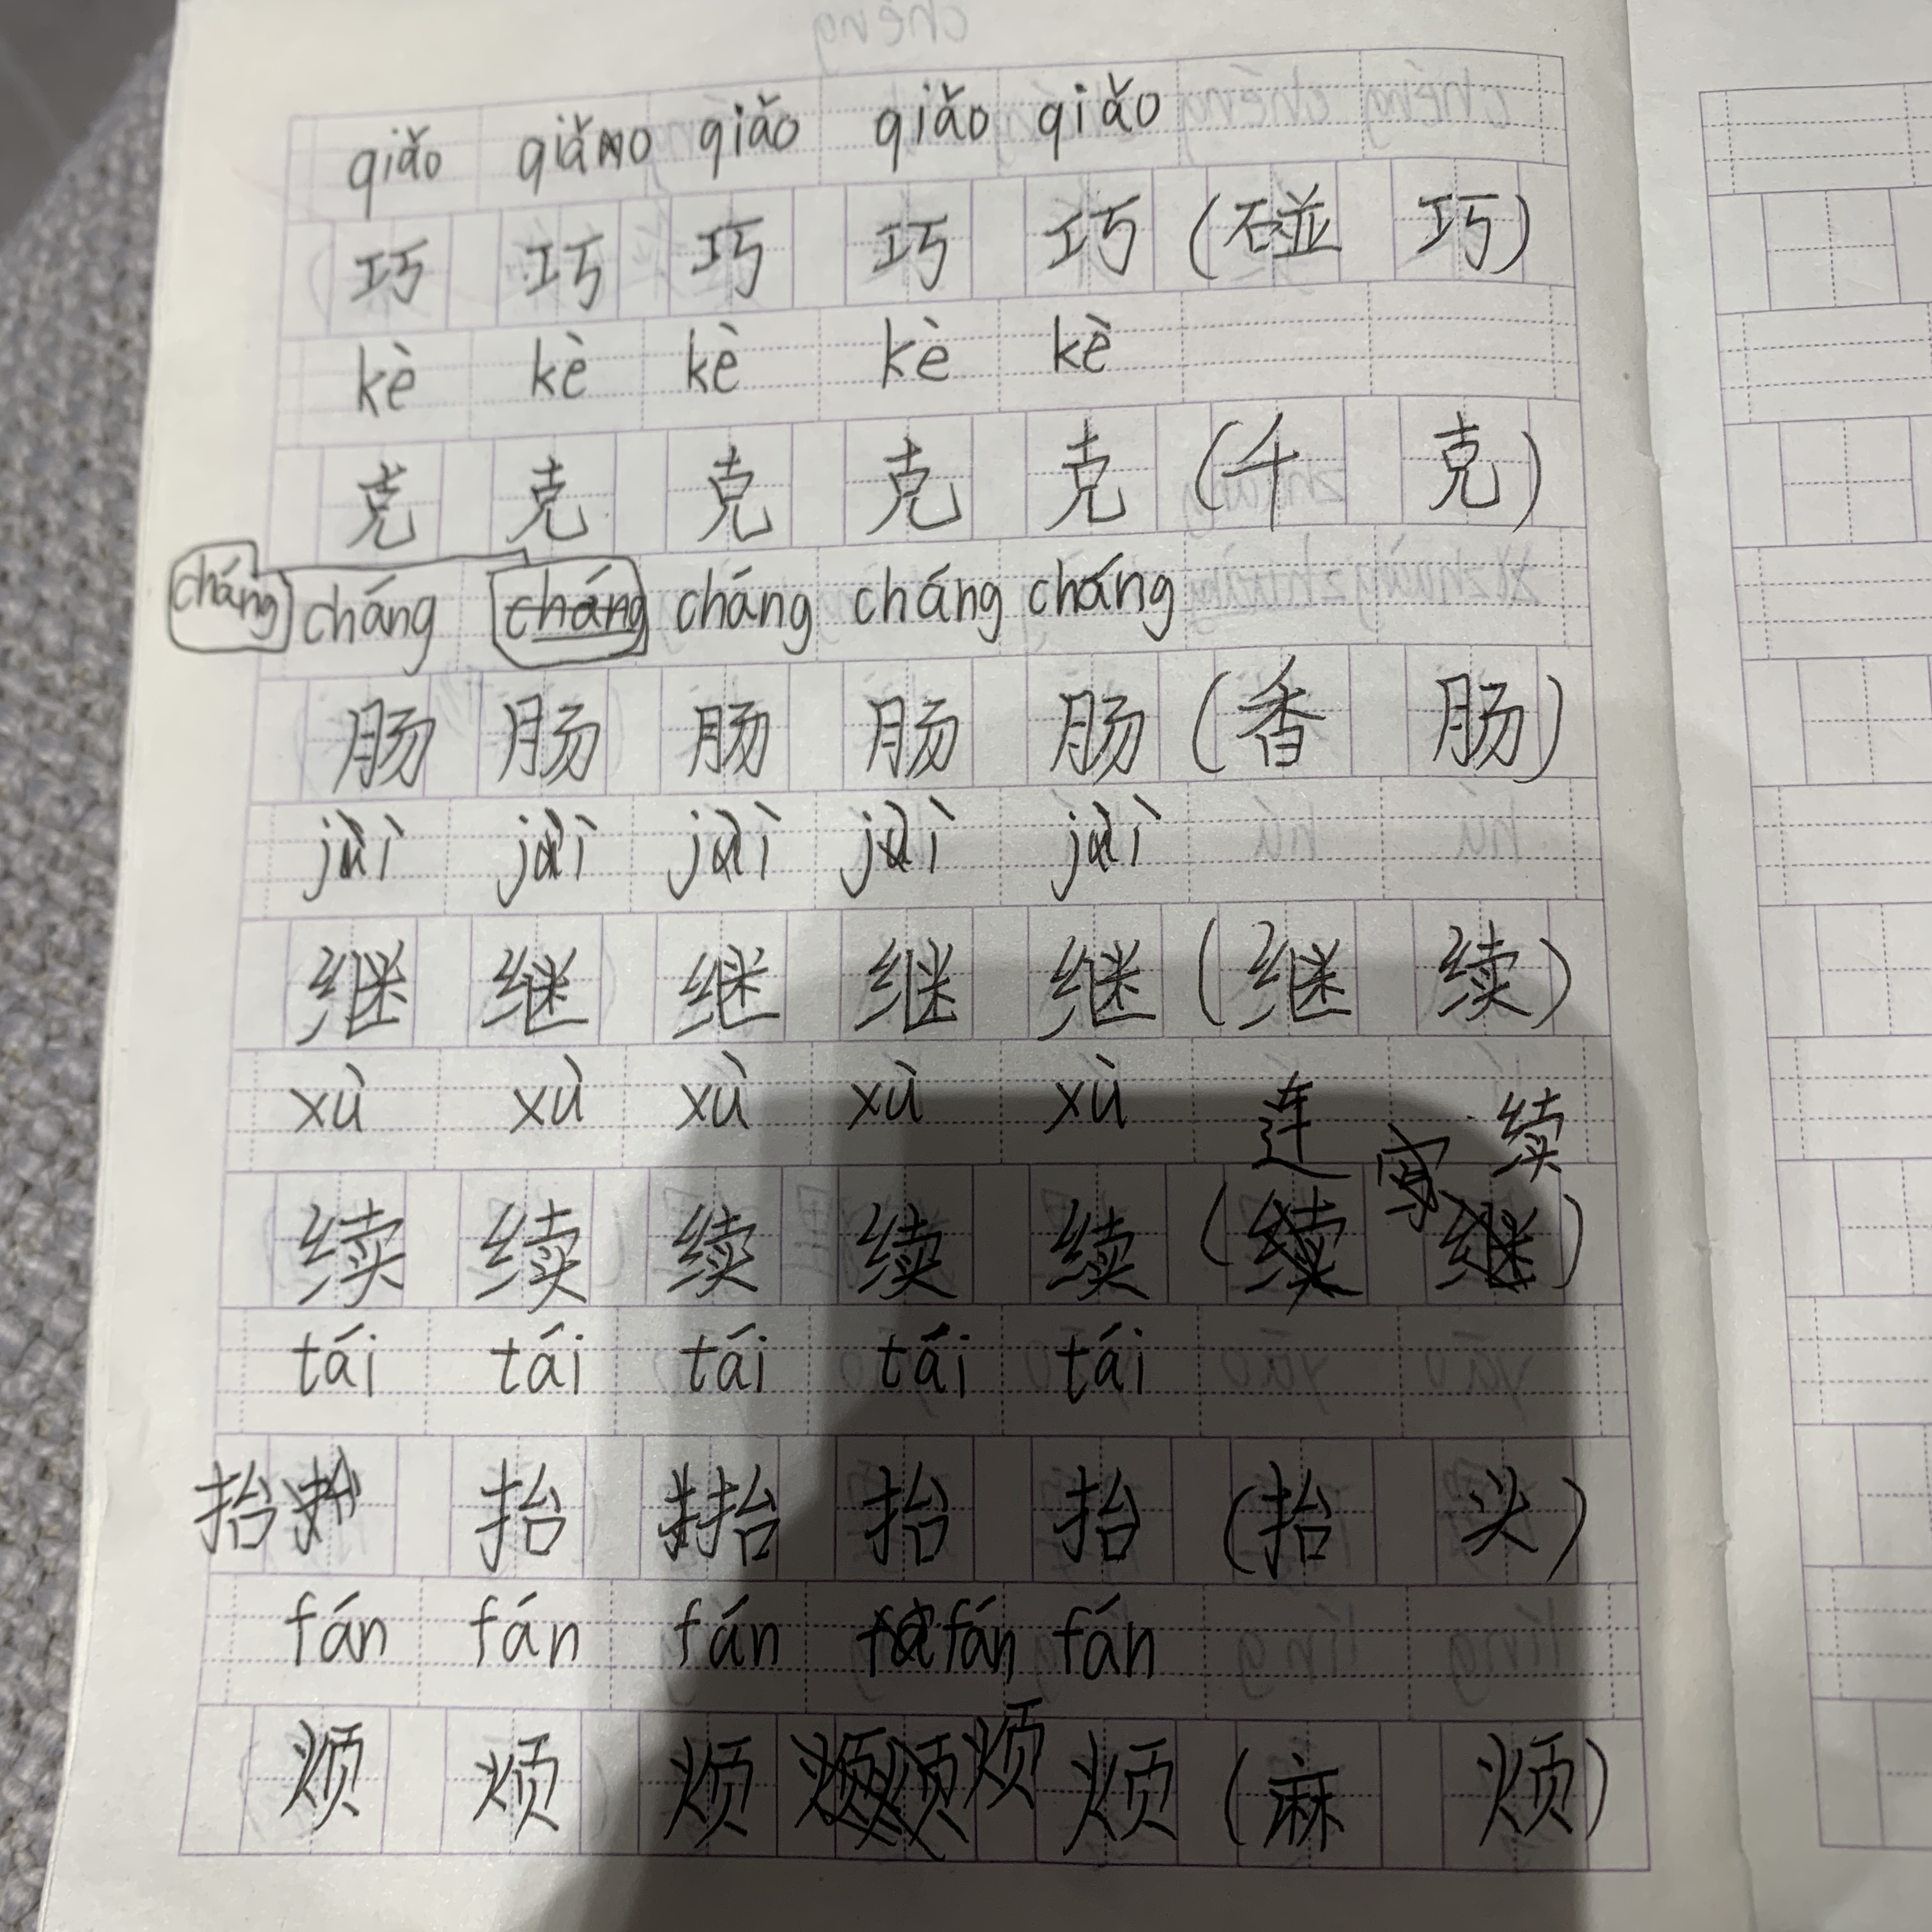 qiǎo qiǎo qiǎo qiǎo qiǎo
巧 巧 巧 巧 巧 (碰 巧)
kè kè kè kè kè
克 克 克 克 克 (千 克)
cháng cháng cháng cháng cháng cháng
肠 肠 肠 肠 肠 (香 肠)
jì jì jì jì jì
继 继 继 继 继 (继 续)
xù xù xù xù xù 连 续
续 续 续 续 续 (续 继)
tái tái tái tái tái
抬 抬 抬 抬 抬 (抬 头)
fán fán fán fán fán
烦 烦 烦 烦 烦 (麻 烦)